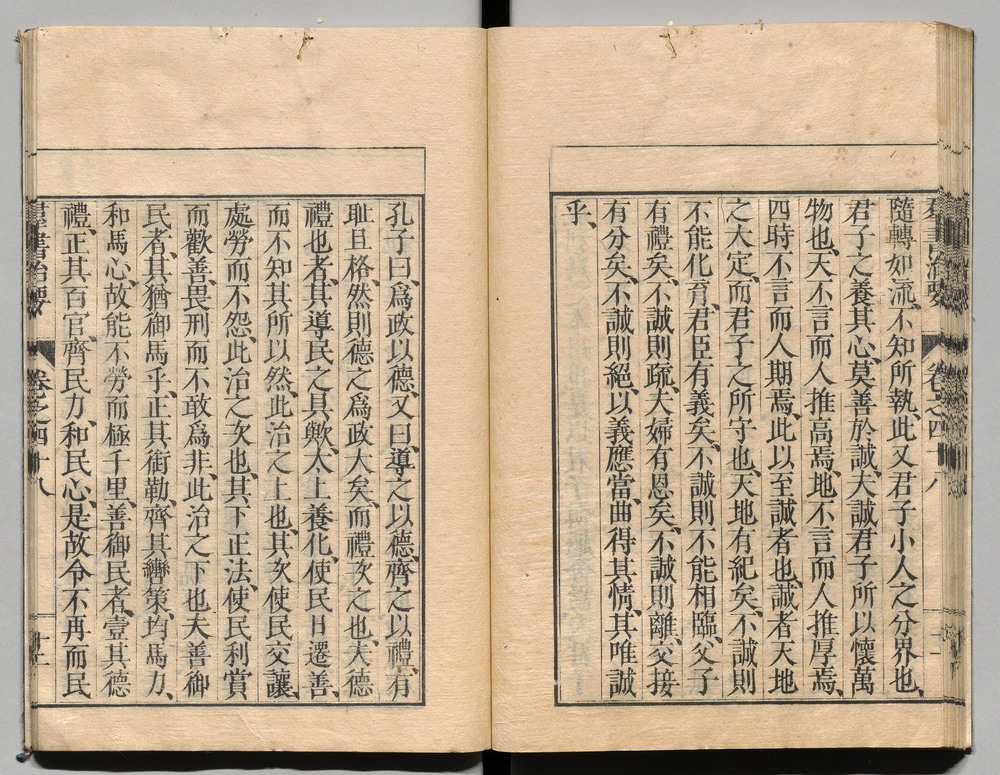 隨轉如流、不知所執、此又君子小人之分界也、
君子之養其心、莫善於誠、夫誠君子所以懷萬
物也、天不言而人推高焉、地不言而人推厚焉、
四時不言而人期焉、此以至誠者也、誠者天地
之大定、而君子之所守也、天地有紀矣、不誠則
不能化育、君臣有義矣、不誠則不能相臨、父子
有禮矣、不誠則疏、夫婦有恩矣、不誠則離、交接
有分矣、不誠則絕、以義應當、曲得其情、其唯誠
乎、
孔子曰、爲政以德、又曰、導之以德、齊之以禮、有
耻且格、然則德之爲政大矣、而禮次之也、夫德
禮也者、其導民之具歟、太上養化、使民日遷善、
而不知其所以然、此治之上也、其次使民交讓、
處勞而不怨、此治之次也、其下正法、使民利賞
而歡善、畏刑而不敢爲非、此治之下也、夫善御
民者、其猶御馬乎、正其銜勒、齊其轡策、均馬力、
和馬心、故能不勞而極千里、善御民者、壹其德
禮、正其百官、齊民力、和民心、是故令不再而民
羣書治要 卷之四十八 十二